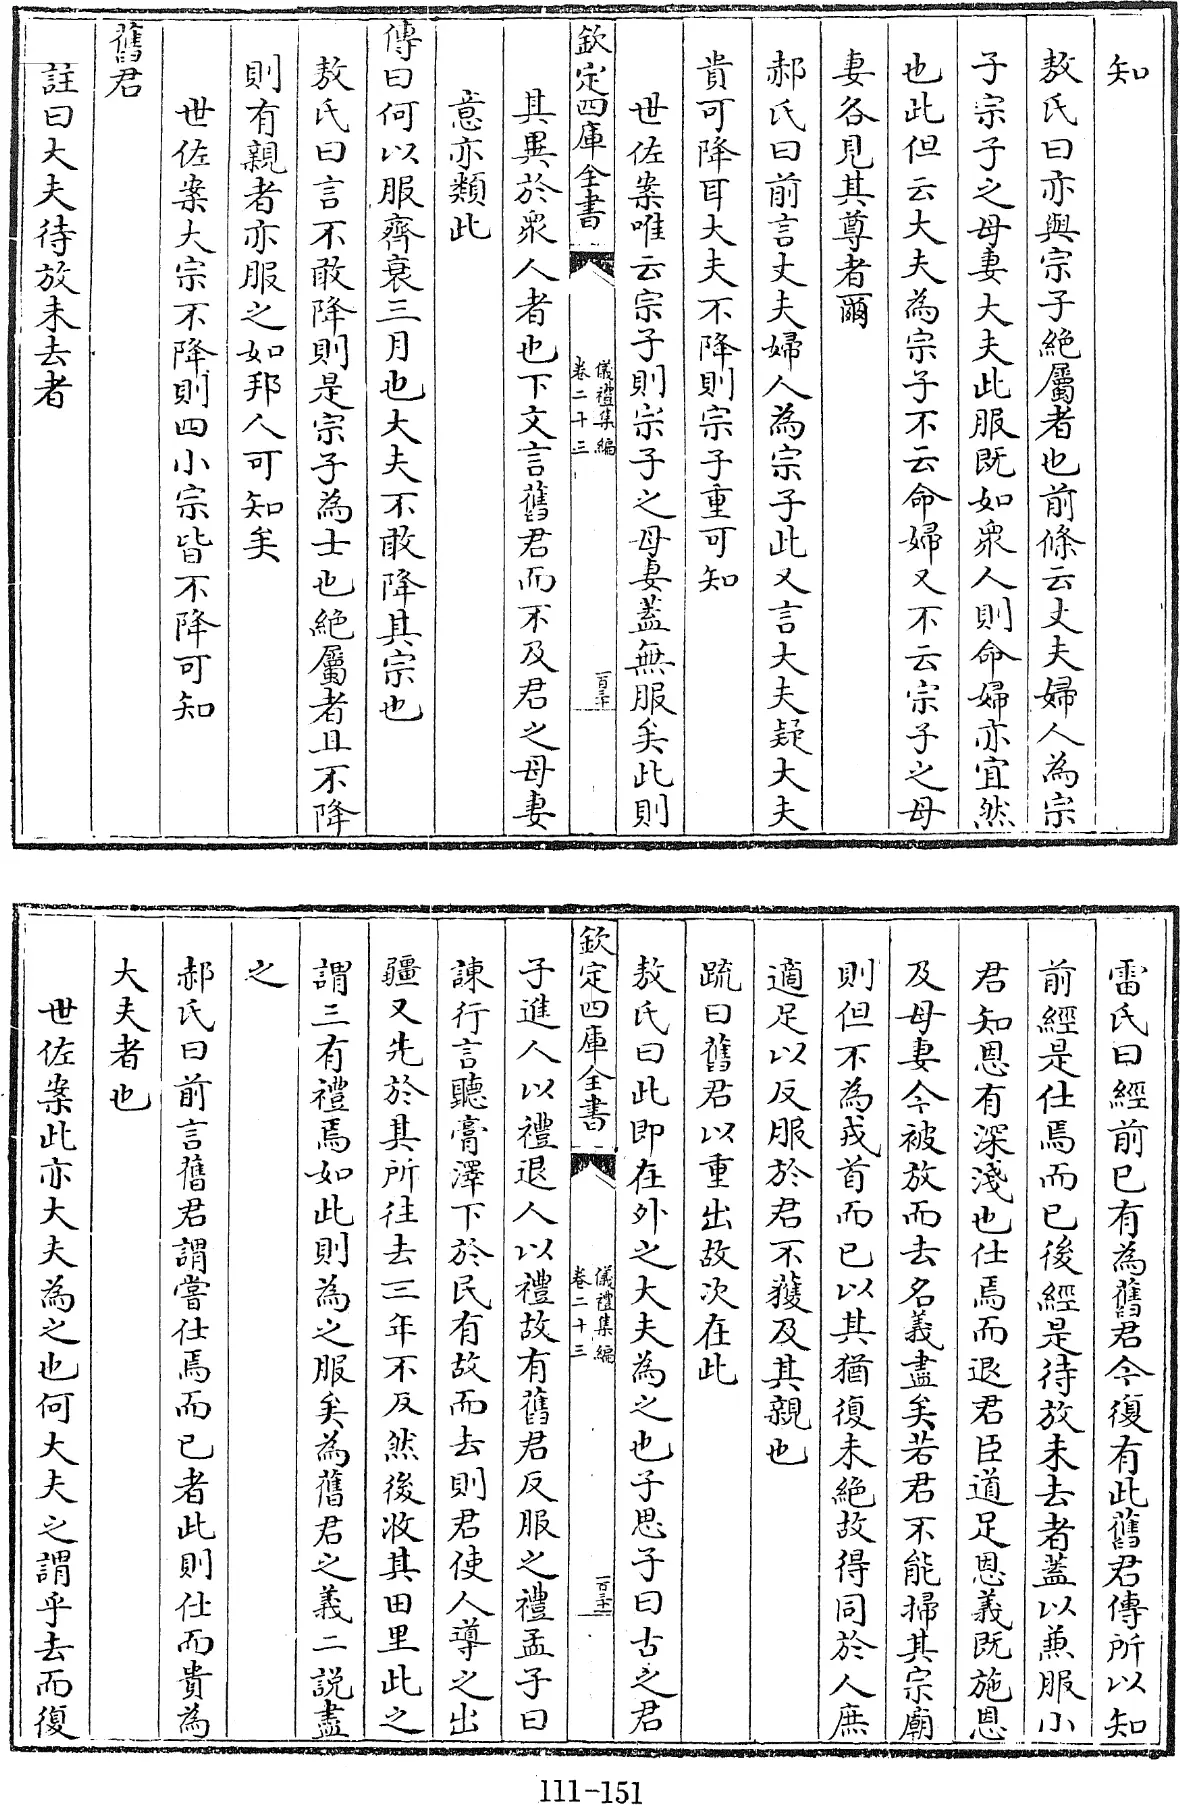 知
敖氏曰亦與宗子絶屬者也前條云丈夫婦人為宗
子宗子之母妻大夫此服既如衆人則命婦亦宜然
也此但云大夫為宗子不云命婦又不云宗子之母
妻各見其尊者爾
郝氏曰前言丈夫婦人為宗子此又言大夫疑大夫
貴可降耳大夫不降則宗子重可知
世佐案唯云宗子則宗子之母妻蓋無服矣此則
欽定四庫全書
儀禮集編
卷二十三
其異於衆人者也下文言舊君而不及君之母妻
意亦類此
傳曰何以服齊衰三月也大夫不敢降其宗也
敖氏曰言不敢降則是宗子為士也絶屬者且不降
則有親者亦服之如邦人可知矣
世佐案大宗不降則四小宗皆不降可知
舊君
註曰大夫待放未去者
雷氏曰經前已有為舊君今復有此舊君傳所以知
前經是仕焉而已後經是待放未去者蓋以兼服小
君知恩有深淺也仕焉而退君臣道足恩義既施恩
及母妻今被放而去名義盡矣若君不能掃其宗廟
則但不為戎首而已以其猶復未絶故得同於人庶
適足以反服於君不獲及其親也
疏曰舊君以重出故次在此
敖氏曰此即在外之大夫為之也子思子曰古之君
欽定四庫全書
儀禮集編
卷二十三
子進人以禮退人以禮故有舊君反服之禮孟子曰
諫行言聽膏澤下於民有故而去則君使人導之出
疆又先於其所往去三年不反然後收其田里此之
謂三有禮焉如此則為之服矣為舊君之義二説盡
之
郝氏曰前言舊君謂嘗仕焉而已者此則仕而貴為
大夫者也
世佐案此亦大夫為之也何大夫之謂乎去而復
111-151